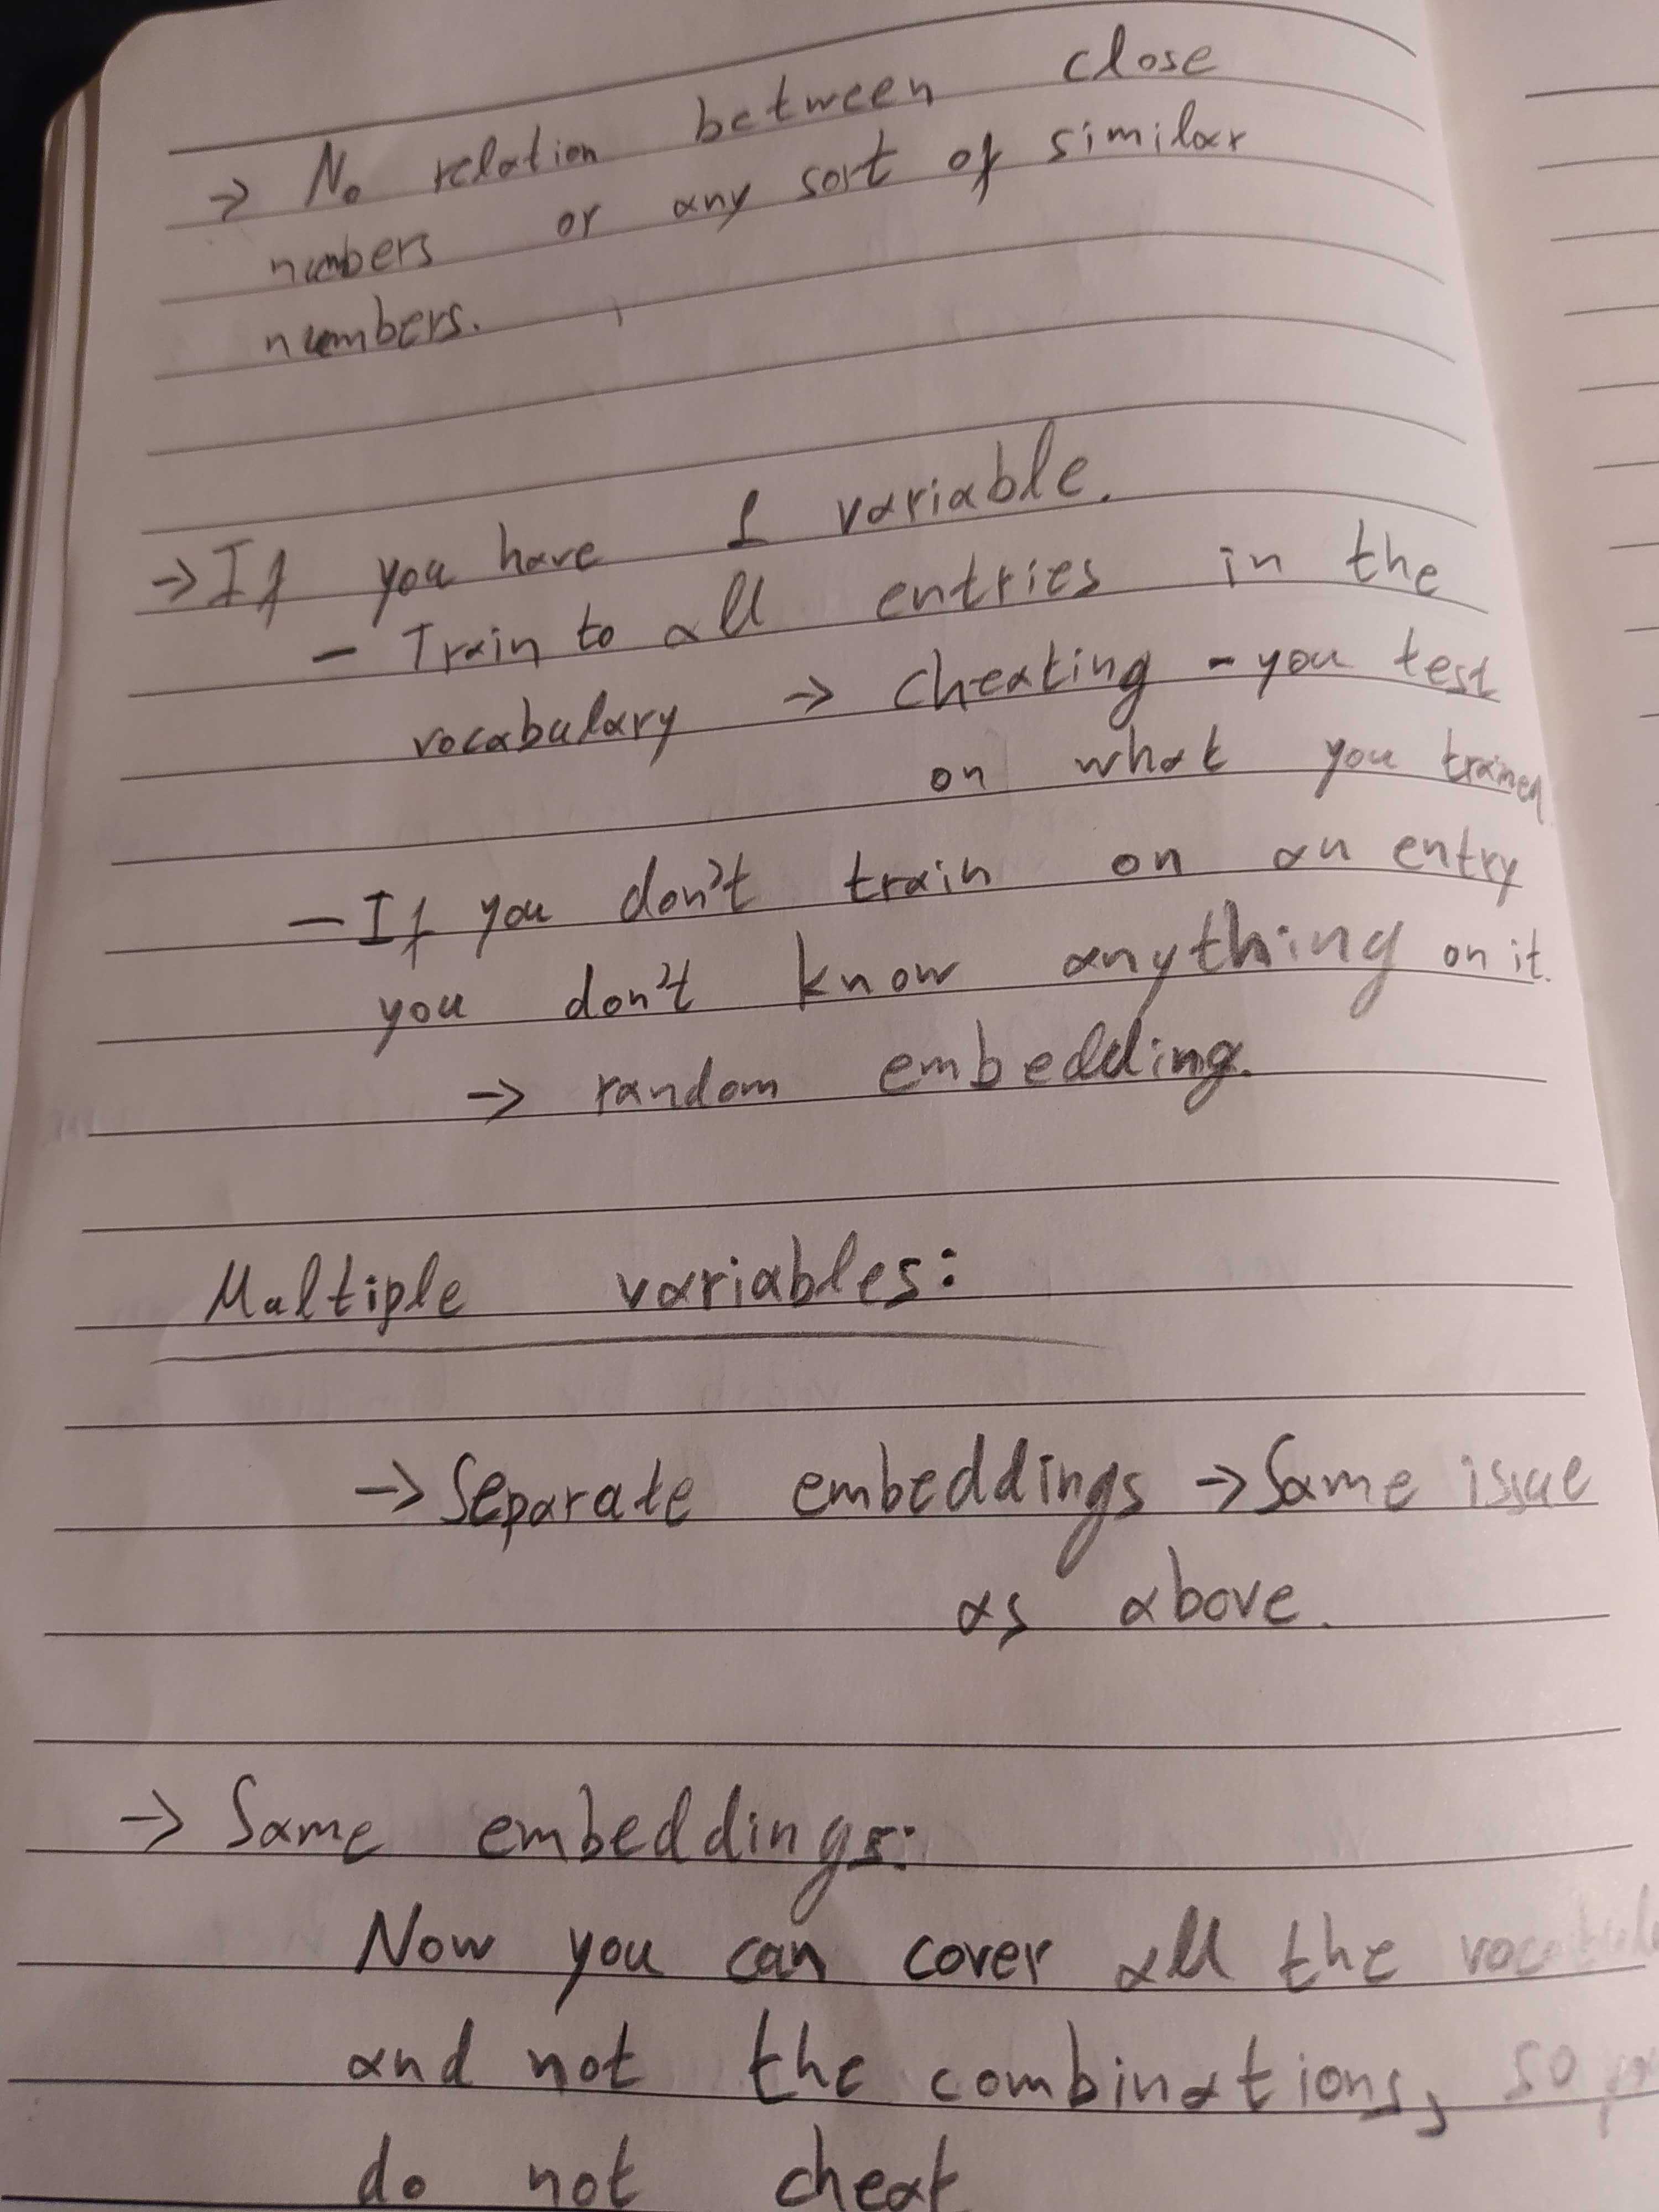 → No relation between close
numbers or any sort of similar
numbers.
→ If you have 1 variable.
– Train to all entries in the
vocabulary → cheating - you test
on what you trained
– If you don't train on an entry
you don't know anything on it.
→ random embedding.
Multiple variables:
→ Separate embeddings → Same issue
as above.
→ Same embeddings:
Now you can cover all the
and not the combinations, so
do not cheat